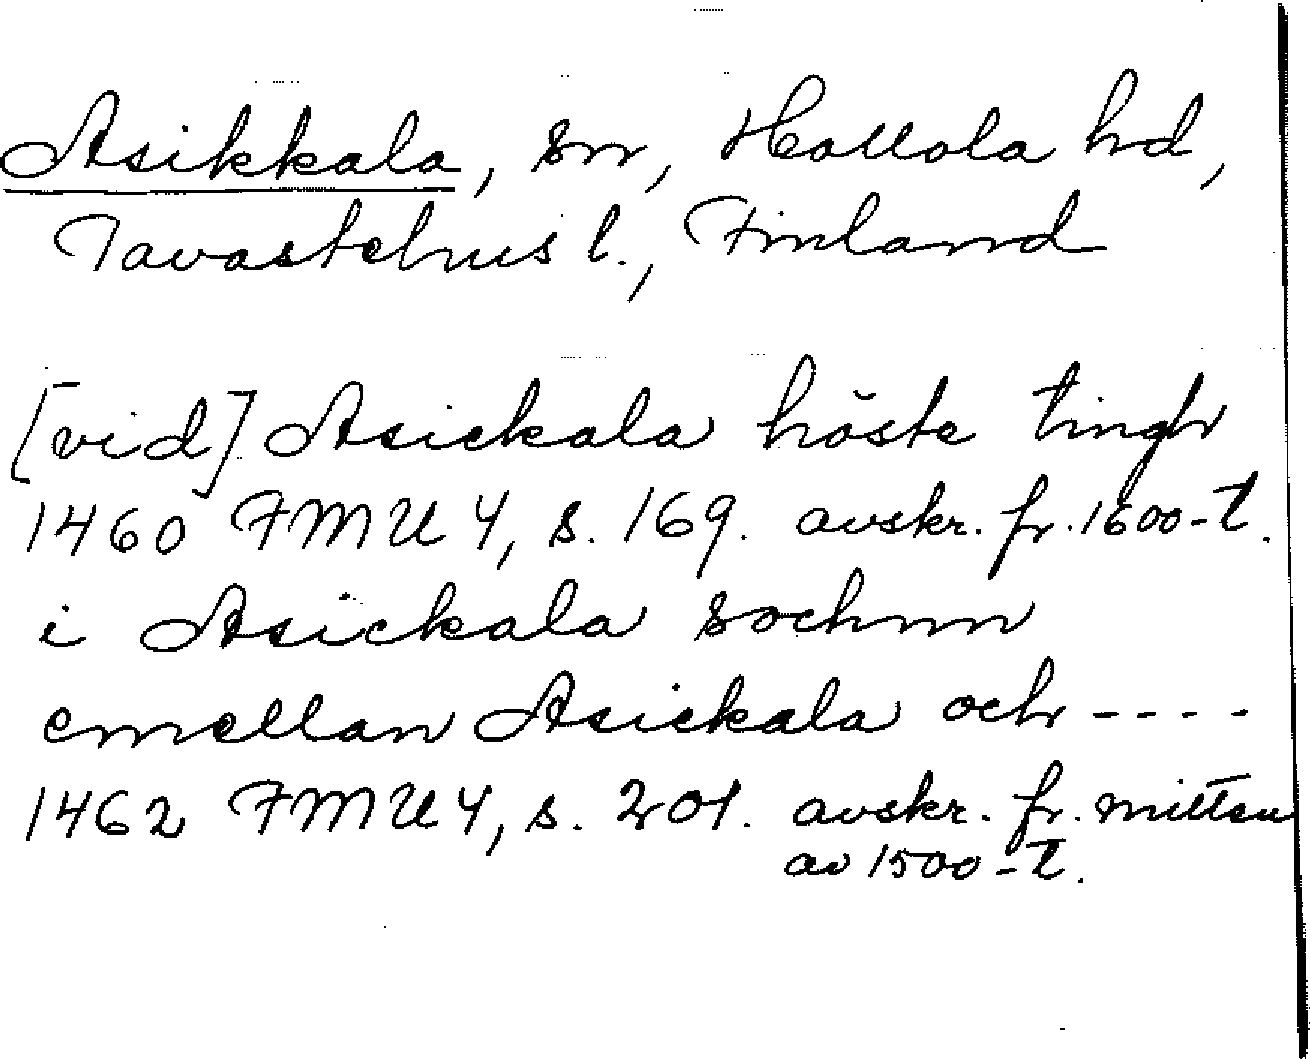 Asikkala, sn, Hollola hd,
Tavastehus l., Finland
[vid] Asickala höste tingh
1460 FMU 4, s. 169. avskr. fr. 1600-t.
i Asickala sochnn
emellan Asickala och ----
1462 FMU 4, s. 201. avskr. fr. mitten
av 1500-t.